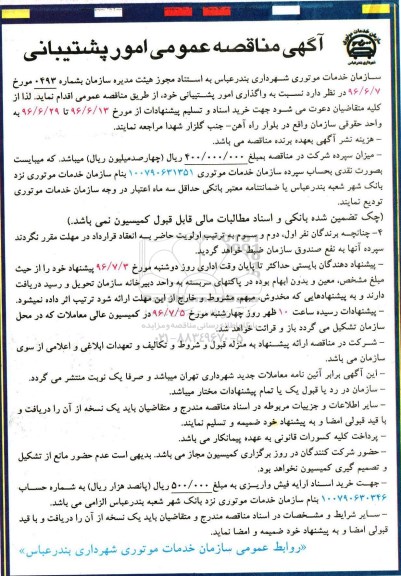 سازمان خدمات موتوری
شهرداری بندرعباس
آگهی مناقصه عمومی امور پشتیبانی
سازمان خدمات موتوری شهرداری بندرعباس به استناد مجوز هیئت مدیره سازمان بشماره ۰۴۹۳ مورخ
۹۶/۶/۷ در نظر دارد نسبت به واگذاری امور پشتیبانی خود، از طریق مناقصه عمومی اقدام نماید. لذا از
کلیه متقاضیان دعوت می شود جهت خرید اسناد و تسلیم پیشنهادات از مورخ ۹۶/۶/۱۳ تا ۹۶/۶/۲۹ به
واحد حقوقی سازمان واقع در بلوار راه آهن- جنب گلزار شهدا مراجعه نمایند.
- هزینه نشر آگهی بعهده برنده مناقصه می باشد.
- میزان سپرده شرکت در مناقصه بمبلغ ۴۰۰/۰۰۰/۰۰۰ ریال (چهارصدمیلیون ریال) میباشد. که میبایست
بصورت نقدی بحساب سپرده سازمان خدمات موتوری ۱۰۰۷۹۰۶۳۱۳۵۱ بنام سازمان خدمات موتوری نزد
بانک شهر شعبه بندرعباس یا ضمانتنامه معتبر بانکی حداقل سه ماه اعتبار در وجه سازمان خدمات موتوری
تودیع نمایند.
(چک تضمین شده بانکی و اسناد مطالبات مالی قابل قبول کمیسیون نمی باشد.)
۴- چنانچه برندگان نفر اول، دوم و سوم به ترتیب اولویت حاضر به انعقاد قرارداد در مهلت مقرر نگردند
سپرده آنها به نفع صندوق سازمان ضبط خواهد گردید.
- پیشنهاد دهندگان بایستی حداکثر تا پایان وقت اداری روز دوشنبه مورخ ۹۶/۷/۳ پیشنهاد خود را از حیث
مبلغ مشخص، معین و بدون ابهام بوده در پاکتهای سربسته به واحد دبیرخانه سازمان تحویل و رسید دریافت
دارند و به پیشنهادهایی که مخدوش، مبهم، مشروط و خارج از این مهلت ارائه شود ترتیب اثر داده نمیشود.
- پیشنهادات رسیده ساعت ۱۰ ظهر روز چهارشنبه مورخ ۹۶/۷/۵ در کمیسیون عالی معاملات که در محل
سازمان تشکیل می گردد باز و قرائت خواهد شد.
- شرکت در مناقصه ارائه پیشنهاد به منزله قبول و شروط و تکالیف و تعهدات ابلاغی و اعلامی از سوی
سازمان می باشد.
- این آگهی برابر آئین نامه معاملات جدید شهرداری تهران میباشد و صرفا یک نوبت منتشر می گردد.
- سازمان در رد یا قبول یک یا تمام پیشنهادات مختار میباشد.
- سایر اطلاعات و جزییات مربوطه در اسناد مناقصه مندرج و متقاضیان باید یک نسخه از آن را دریافت و
با قید قبولی امضا و به پیشنهاد خود ضمیمه و تسلیم نمایند.
- پرداخت کلیه کسورات قانونی به عهده پیمانکار می باشد.
- حضور شرکت کنندگان در روز برگزاری کمیسیون مجاز می باشد. بدیهی است عدم حضور مانع از تشکیل
و تصمیم گیری کمیسیون نخواهد بود.
- جهت خرید اسناد ارایه فیش واریزی به مبلغ ۵۰۰/۰۰۰ ریال (پانصد هزار ریال) به شماره حساب
۱۰۰۷۹۰۶۳۰۳۴۶ بنام سازمان خدمات موتوری نزد بانک شهر شعبه بندرعباس الزامی می باشد.
- سایر شرایط و مشخصات در اسناد مناقصه مندرج و متقاضیان باید یک نسخه از آن را دریافت و با قید
قبولی امضا و به پیشنهاد خود ضمیمه و امضا نماید.
«روابط عمومی سازمان خدمات موتوری شهرداری بندرعباس»